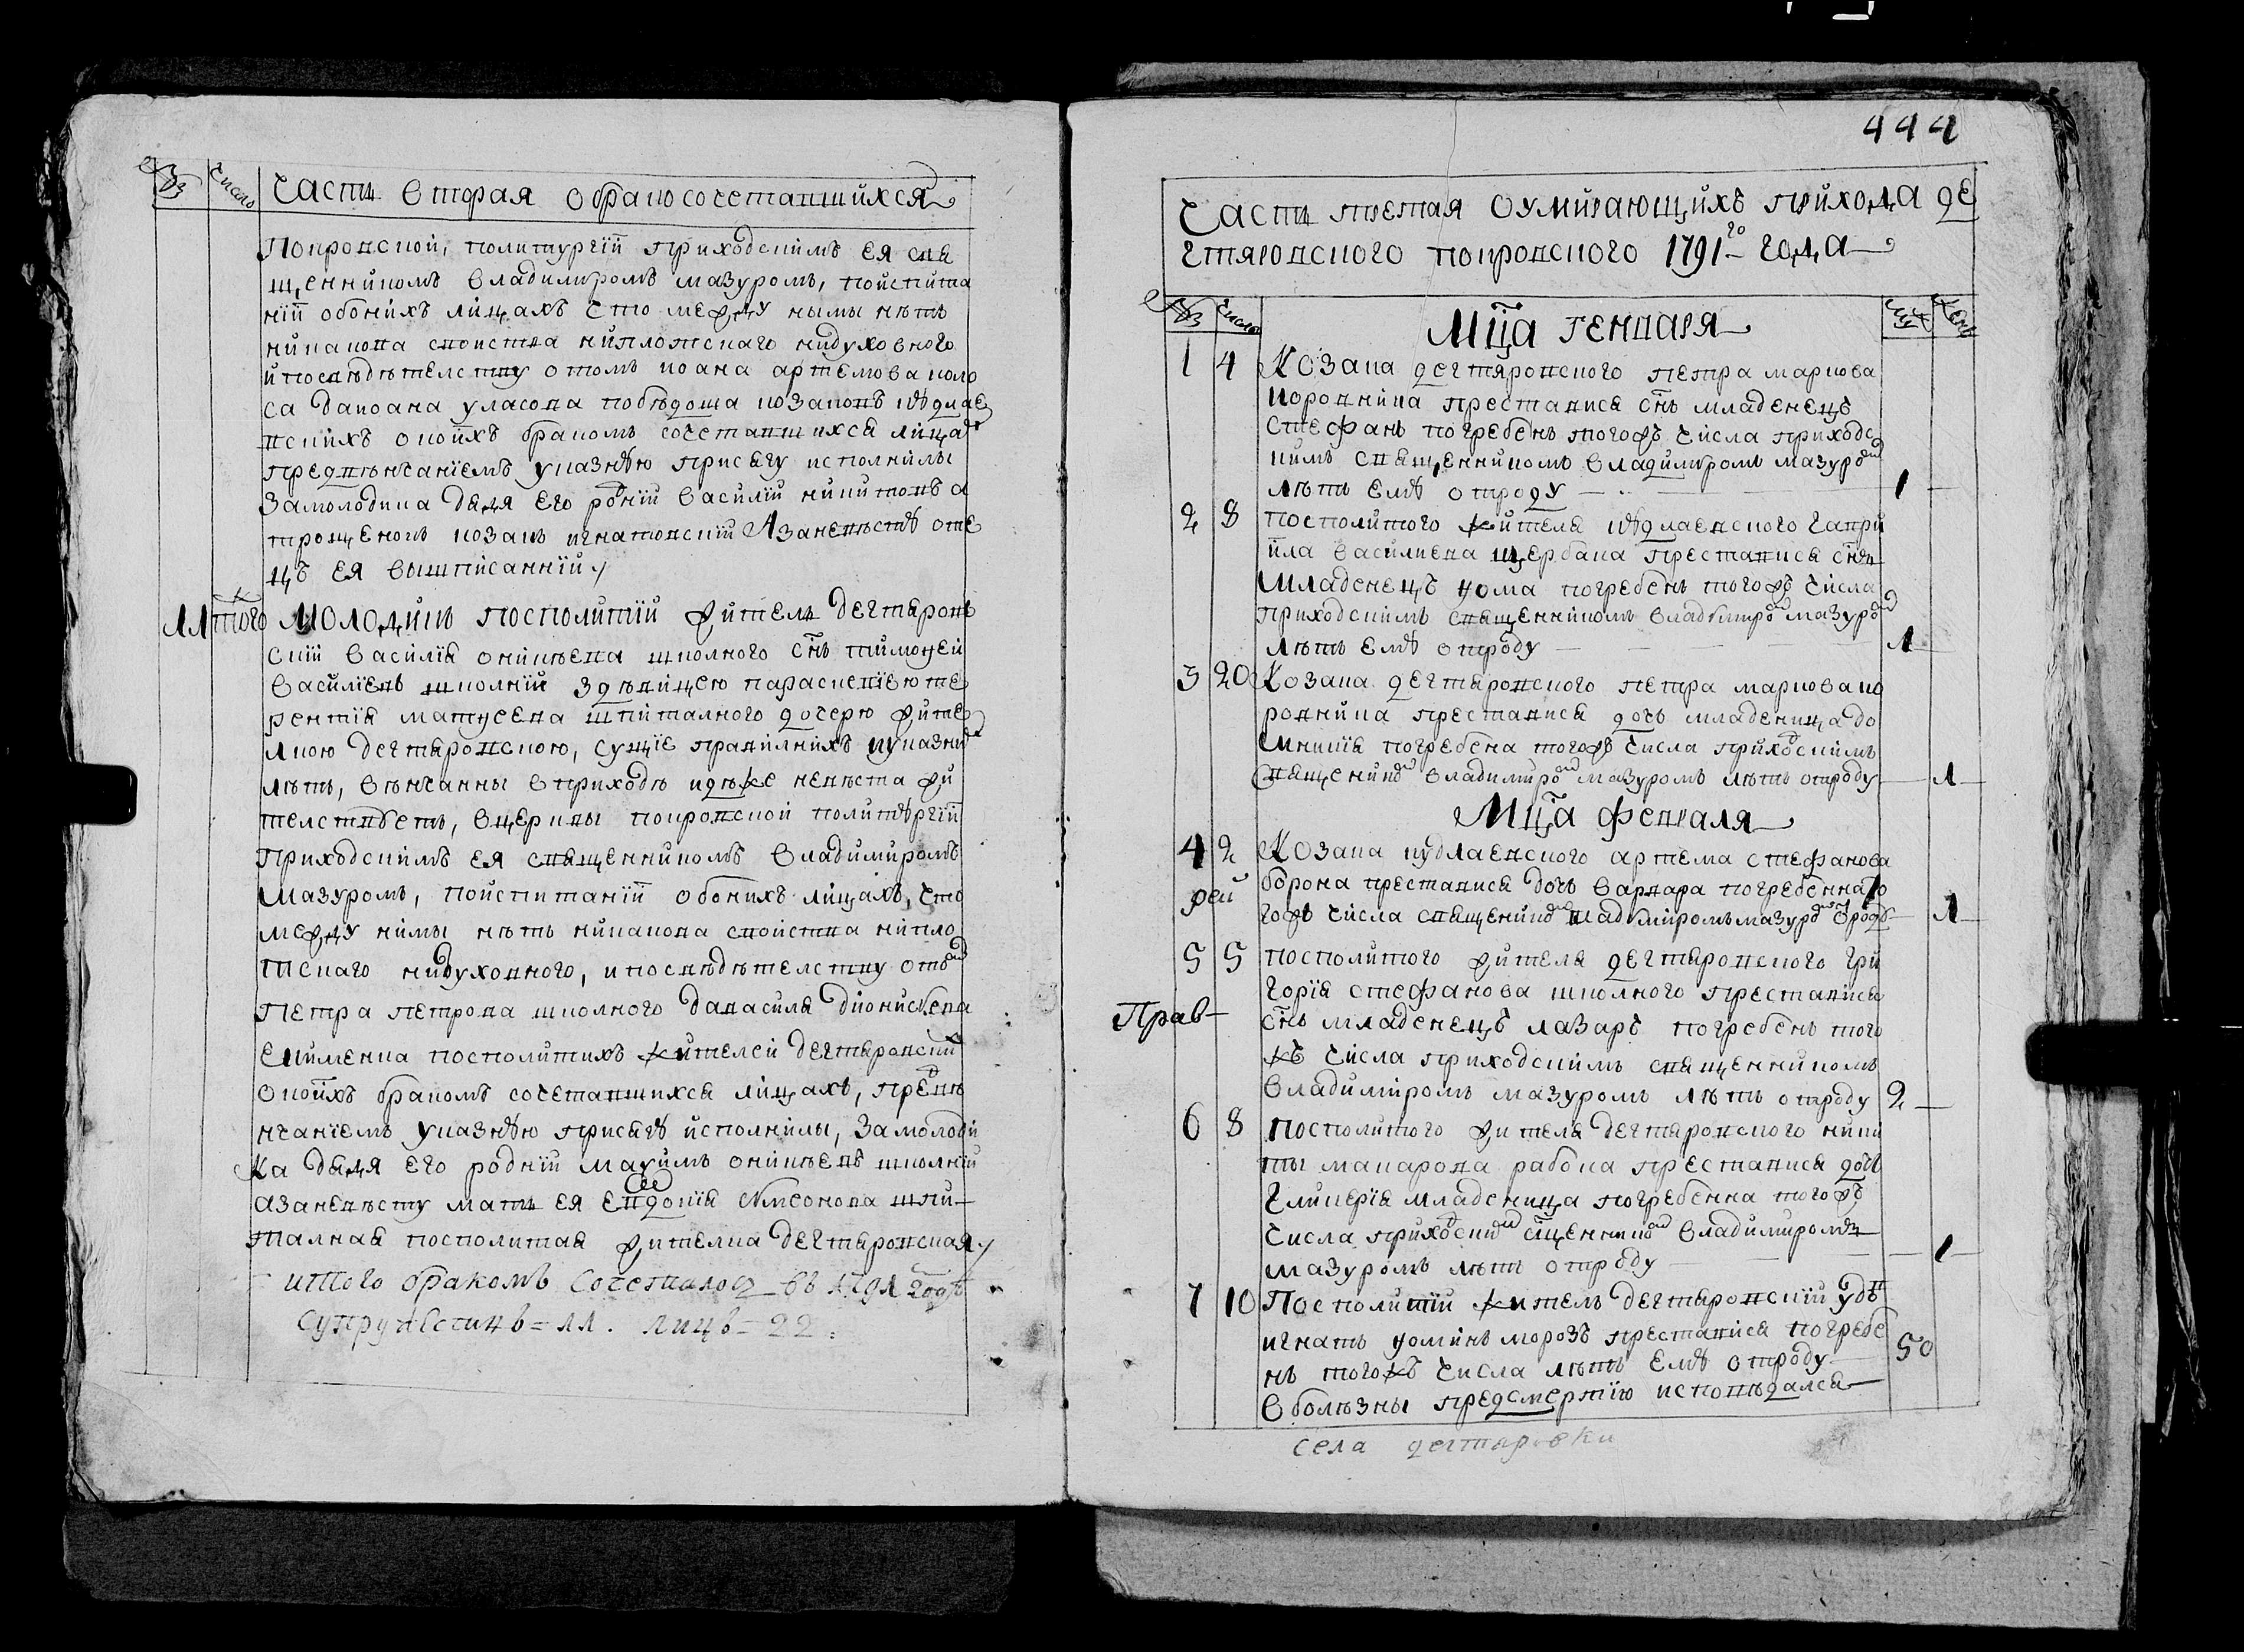 № Число Часть вторая о бракосочетавшихся
Покровской, политургїи приходскимъ ея свя
щенникомъ владимиромъ мазуромъ, поиспита
нїи обоихъ лицахъ что между нымы нѣтъ
никакова своиства ниплотскаго нидуховного
ипосвѣдѣтелству отомъ
са дакоана уласова
вскихъ окоихъ бракомъ сочетавшихся лицахъ
предвѣнчанїемъ указную присягу исполнилы
Замолодика дядя его роднїй василїй никитовъ а
козакъ игнатовскїй Азаневѣсту оте
цъ ея вышписаннїй
11 тогож Молодикъ посполитїй житель дегтяров
скїй василїя оникѣева школного снъ тимофей
василїевъ школнїй здѣвицею параскевїею те
рентїя матфеева шпиталного дочерю жите
лкою дегтяровскою, сущїе правилнихъ иуказних
лѣтъ, вѣнчанны вприходѣ идѣже невѣста жи
телствуетъ, вцерквы покровской политургїи
приходскимъ ея священникомъ владимиромъ
мазуромъ, поиспитанїи обоихъ лицахъ, что
между нимы нѣтъ никакова своиства нипло
тскаго нидуховного, ипосвѣдѣтелству отомъ
петра петрова школного давасиля дїонисїева
посполитихъ жителей дегтяровскихъ
окоихъ бракомъ сочетавшихся лицахъ, предвѣ
нчанїемъ указную присягу исполнилы, Замолоди
ка дядя его роднїй маѯимъ оникѣевъ школнїй
азаневѣсту мать ея евдокїя симеонова шпи
талная посполитая жителка дегтяровская
итого бракомъ сочеталося въ 1791 годѣ
супружествъ = 11. лицъ = 22.
444
Часть третая оумирающихъ прихода де
гтяровского покровского 1791го года
№ Число Мца генваря
1 4 Козака дегтяровского петра маркова
коровника преставися снъ младенецъ
стефанъ погребенъ тогожъ числа приходс
кимъ священникомъ владимиромъ мазуромъ
лѣтъ ему отроду 1
2 8 посполитого жителя иудлаевского гаври
ила василиева щербака преставися снъ
младенецъ фома погребенъ тогожъ числа
приходскимъ священникомъ владимиромъ мазуромъ
лѣтъ ему отроду 1
3 20 Козака дегтяровского петра маркова ко
ровника преставися дочь младеница до
мникїя погребена тогожъ числа приходскимъ
священникомъ владимиромъ мазуромъ лѣтъ отроду 1
Мца февраля
4 2 Козака иудлаевского артема стефанова
борона преставися дочь варвара погребенна то
гожъ числа священикомъ владимиромъ мазуромъ отроду 1
5 5 посполитого жителя дегтяровского гри
горїя стефанова школного преставися
снъ младенецъ лазаръ погребенъ того
жъ числа приходскимъ священникомъ
владимиромъ мазуромъ лѣтъ отроду 2
Прав
6 8 посполитого жителя дегтяровского ники
ты макарова рабока преставися дочь
гликерїя младеница погребенна тогожъ
числа приходскимъ сщенникомъ владимиромъ
мазуромъ лѣтъ отроду 1
7 10 Посполитїй житель дегтяровскїй удовъ
игнатъ фоминъ морозъ преставися погребе
нъ тогожъ числа лѣтъ ему отроду 50
вболѣзны предсмертїю исповѣдался
села дегтяровки